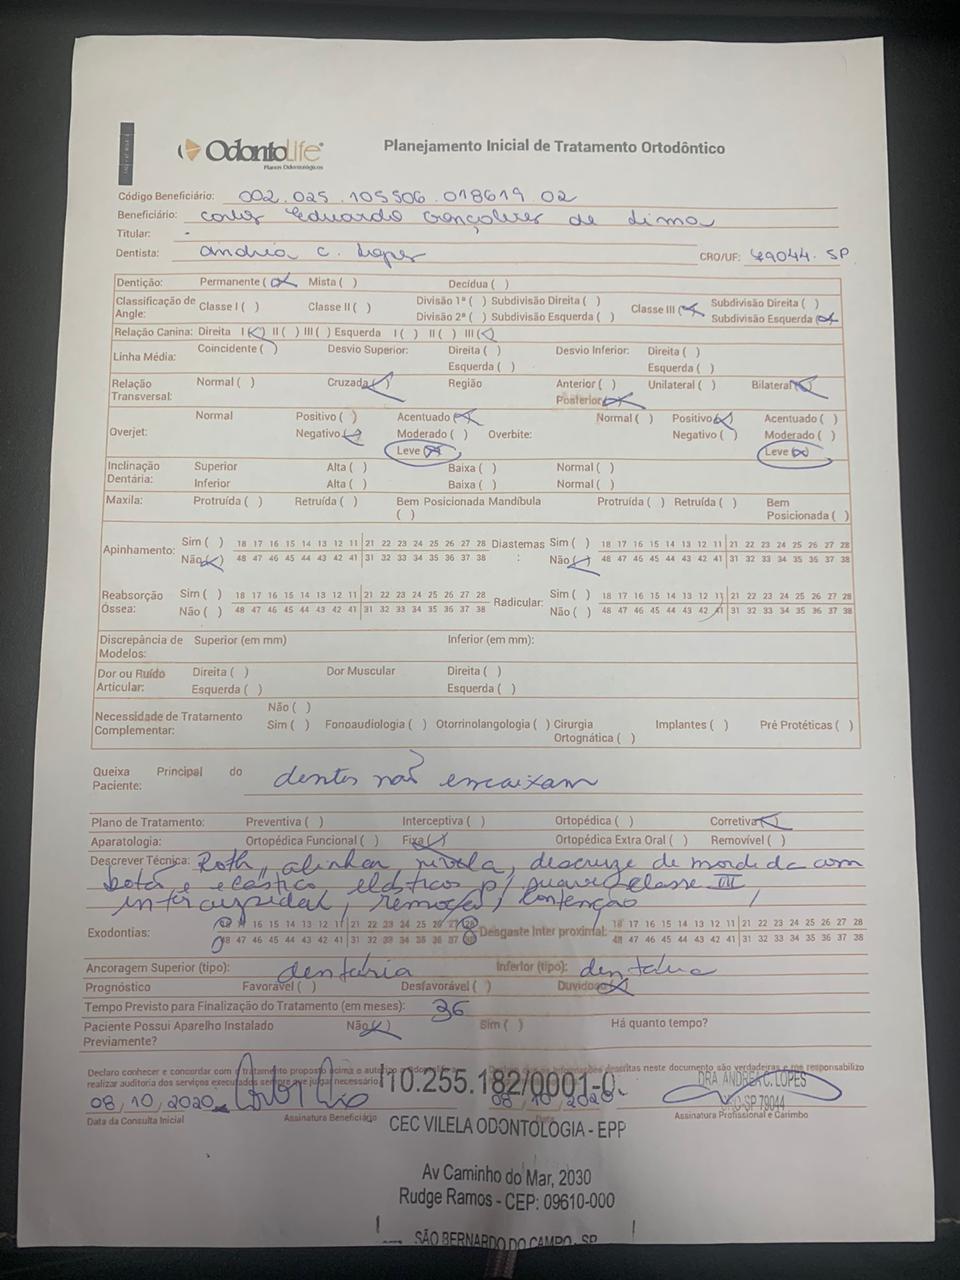 OdontoLife
Planos Odontológicos
Planejamento Inicial de Tratamento Ortodôntico
Código Beneficiário: 002.025.105506.018619.02
Beneficiário: Carlos Eduardo Gonçalves de Lima
Titular: -
Dentista: Andréa C. Lopes CRO/UF: 79044. SP
Dentição: Permanente (X) Mista ( ) Decídua ( )
Classificação de Angle: Classe I ( ) Classe II ( ) Divisão 1ª ( ) Subdivisão Direita ( ) Classe III (X) Subdivisão Direita ( )
Divisão 2ª ( ) Subdivisão Esquerda ( ) Subdivisão Esquerda (X)
Relação Canina: Direita I (X) II ( ) III ( ) Esquerda I ( ) II ( ) III (X)
Linha Média: Coincidente ( ) Desvio Superior: Direita ( ) Desvio Inferior: Direita ( )
Esquerda ( ) Esquerda ( )
Relação Transversal: Normal ( ) Cruzada (X) Região Anterior ( ) Unilateral ( ) Bilateral (X)
Posterior (X)
Overjet: Normal Positivo ( ) Acentuado (X) Overbite: Normal ( ) Positivo (X) Acentuado ( )
Negativo (X) Moderado ( ) Negativo ( ) Moderado ( )
Leve (X) Leve (X)
Inclinação Dentária: Superior Alta ( ) Baixa ( ) Normal ( )
Inferior Alta ( ) Baixa ( ) Normal ( )
Maxila: Protruída ( ) Retruída ( ) Bem Posicionada ( ) Mandíbula Protruída ( ) Retruída ( ) Bem Posicionada ( )
Apinhamento: Sim ( ) 18 17 16 15 14 13 12 11 21 22 23 24 25 26 27 28 Diastemas : Sim ( ) 18 17 16 15 14 13 12 11 21 22 23 24 25 26 27 28
Não (X) 48 47 46 45 44 43 42 41 31 32 33 34 35 36 37 38 Não (X) 48 47 46 45 44 43 42 41 31 32 33 34 35 36 37 38
Reabsorção Óssea: Sim ( ) 18 17 16 15 14 13 12 11 21 22 23 24 25 26 27 28 Radicular: Sim ( ) 18 17 16 15 14 13 12 11 21 22 23 24 25 26 27 28
Não ( ) 48 47 46 45 44 43 42 41 31 32 33 34 35 36 37 38 Não ( ) 48 47 46 45 44 43 42 41 31 32 33 34 35 36 37 38
Discrepância de Modelos: Superior (em mm) Inferior (em mm):
Dor ou Ruído Articular: Direita ( ) Dor Muscular Direita ( )
Esquerda ( ) Esquerda ( )
Necessidade de Tratamento Complementar: Não ( )
Sim ( ) Fonoaudiologia ( ) Otorrinolangologia ( ) Cirurgia Ortognática ( ) Implantes ( ) Pré Protéticas ( )
Queixa Principal do Paciente: dentes não encaixam
Plano de Tratamento: Preventiva ( ) Interceptiva ( ) Ortopédica ( ) Corretiva (X)
Aparatologia: Ortopédica Funcional ( ) Fixa (X) Ortopédica Extra Oral ( ) Removível ( )
Descrever Técnica: Roth, alinhar, nivela, descruze de mordida com
botão e elástico, elásticos p/ classe III,
intercuspidal, remoção, contenção
Exodontias: 18 17 16 15 14 13 12 11 21 22 23 24 25 26 27 28 Desgaste Inter proximal: 18 17 16 15 14 13 12 11 21 22 23 24 25 26 27 28
48 47 46 45 44 43 42 41 31 32 33 34 35 36 37 38 48 47 46 45 44 43 42 41 31 32 33 34 35 36 37 38
Ancoragem Superior (tipo): dentária Inferior (tipo): dentária
Prognóstico Favorável ( ) Desfavorável ( ) Duvidoso (X)
Tempo Previsto para Finalização do Tratamento (em meses): 36
Paciente Possui Aparelho Instalado Previamente? Não (X) Sim ( ) Há quanto tempo?
Declaro conhecer e concordar com o tratamento proposto acima e autorizo a neste documento são verdadeiras e me responsabilizo
realizar auditoria dos serviços executados sempre que julgar necessário
110.255.182/0001-0
08/10/2020 08/10/2020 DRA ANDREA C. LOPES
CRO-SP 79044
Data da Consulta Inicial Assinatura Beneficiário Data Assinatura Profissional e Carimbo
CEC VILELA ODONTOLOGIA - EPP
Av Caminho do Mar, 2030
Rudge Ramos - CEP: 09610-000
SÃO BERNARDO DO CAMPO - SP